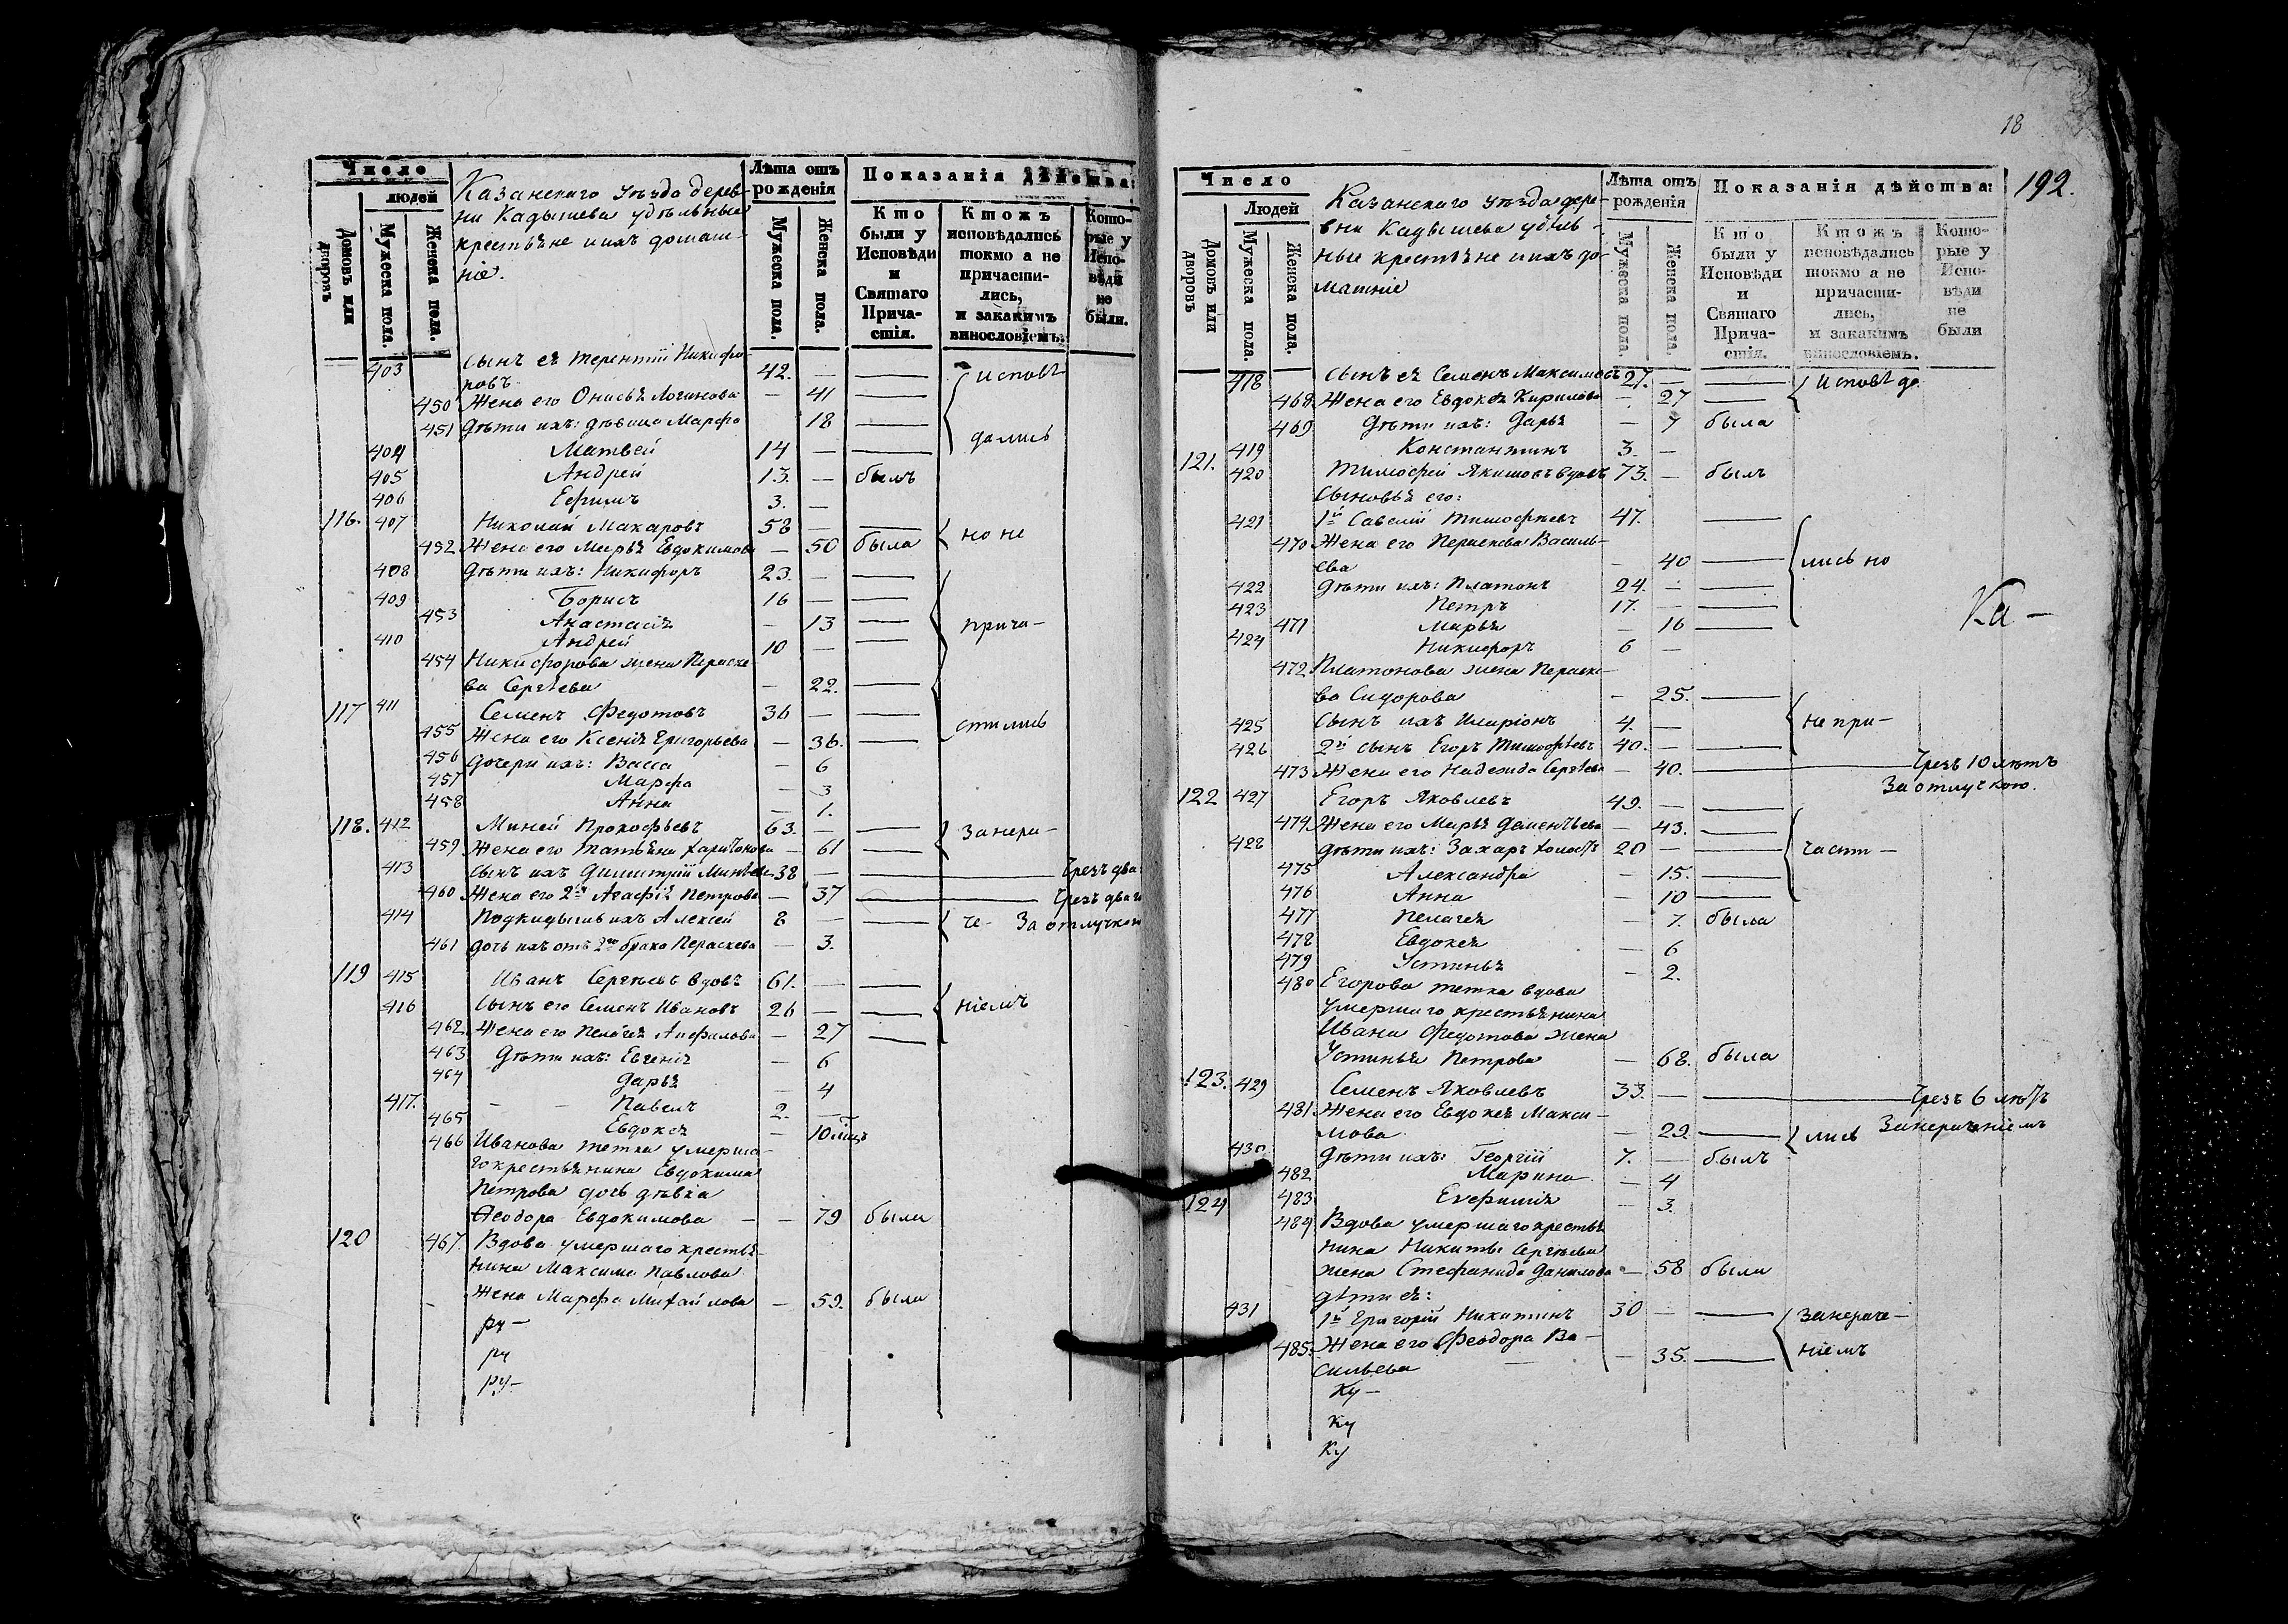 Число
людей
Домовъ или дворовъ
Мужеска пола.
Женска пола.
Казанскаго уѣзда дерев-
ни Кадышева удѣльные
крестьяне и ихъ домаш-
ніе.
Лѣта отъ рожденія
Мужеска пола.
Женска пола.
Показанія дѣйства:
Кто были у Исповѣди и Святаго Прича-стія.
Ктожъ исповѣдались токмо а не причасти-лись, и закакимъ винословіемъ.
Кото-рые у Испо-вѣди не были.
403 Сынъ ея Терентій Никифо-
ровъ 42. — — Исповѣ
450 Жена его Онисья Логинова — 41 —
451 Дѣти ихъ: дѣвица Марфа 18 —
404 Матвей 14 — — дались
405 Андрей 13. — былъ
406 Ефимъ 3. —
116. 407 Николай Макаровъ 58 — — но не
452 Жена его Марья Евдокимова — 50 была
408 Дѣти ихъ: Никифоръ 23. — —
409 Борисъ 16 — —
453 Анастасія — 13 — прича-
410 Андрей 10 — —
454 Никифорова жена Параске
ва Сергѣева — 22. —
117 411 Семенъ Федотовъ 36 — — стились
455 Жена его Ксенія Григорьева — 36. —
456 Дочери ихъ: Васса — 6
457 Марфа — 3
458 Анна — 1.
118. 412 Миней Прокофьевъ 63. — — Занера-
459 Жена его Татьяна Харитонова — 61 —
413 Сынъ ихъ Димитрій Минѣевъ 38 — — Чрезъ два
460 Жена его 2я Агафія Петрова — 37 — Чрезъ два
414 Подкидышъ ихъ Алексей 8 — — че- За отлучкою
461 Дочь ихъ отъ 2го брака Параскева — 3.
119 415 Иванъ Сергѣевъ вдовъ 61. — —
416 Сынъ его Семенъ Ивановъ 26 — — ніемъ
462 Жена его Пелагея — 27 —
463 Дѣти ихъ: Евгенія — 6
464 Дарья — 4
417. — — Павелъ 2. —
465 Евдокея — 10 мцъ
466 Иванова тетка умерша-
го крестьянина Евдокима
Петрова дочь дѣвка
Феодора Евдокимова — — 79 была
120 467. Вдова умершаго крестья-
нина Максима Павлова
жена Марфа Михайлова — 59. была
ру-
ру
ру-
18
192.
Число
Людей
Домовъ или дворовъ
Мужеска пола.
Женска пола.
Казанскаго уѣзда дере-
вни Кадышева удѣль-
ные крестьяне и ихъ до-
машніе
Лѣта отъ рожденія
Мужеска пола.
Женска пола.
Показанія дѣйства:
Кто были у Исповѣди и Святаго Прича-стія.
Ктожъ исповѣдались токмо а не причасти-лись, и закакимъ винословіемъ.
Кото-рые у Испо-вѣди не были
418 Сынъ ея Семенъ Максимовъ 27. — — Исповѣда
468 Жена его Евдокея Кирилова — 27 —
469 Дѣти ихъ: Дарья — 7 была
419 Константинъ 3. —
121. 420 Тимофей Якимовъ вдовъ 73. — былъ
Сыновья его:
421 1й Савелій Тимофѣевъ 47. —
470 Жена его Параскева Василь-
ева — 40 — лись но
422 Дѣти ихъ: Платонъ 24. — —
423 Петръ 17. — —
471 Марья — 16 —
424 Никифоръ 6 —
Ка-
472 Платонова жена Параске-
ва Сидорова — 25. —
425 Сынъ ихъ Иларіонъ 4. — не при-
426 2й сынъ Егоръ Тимофѣевъ 40. — —
473 Жена его Надежда Сергѣева — 40. — Чрезъ 10 лѣтъ
За отлучкою.
122 427 Егоръ Яковлевъ 49. — —
474 Жена его Марья Деменьтьева — 43. —
428 Дѣти ихъ: Захаръ холостъ 20 — — части-
475 Александра — 15. —
476 Анна — 10 —
477 Пелагея — 7. была
478 Евдокея — 6
479 Устинья — 2.
480 Егорова тетка вдова
умершаго крестьянина
Ивана Федотова жена
Устинья Петрова — 68. была
123. 429 Семенъ Яковлевъ 33. — — Чрезъ 6 лѣтъ
481 Жена его Евдокея Макси-
мова — 29. — лись Занераченіемъ
430 Дѣти ихъ: Георгій 7. — былъ
482 Марина — 4
124 483 Евфимія — 3.
484 Вдова умершаго крестья
нина Никиты Сергѣева
жена Стефанида Данилова — 58 была
дѣти ея:
431 1й Григорій Никитинъ 30 — — Занераче-
485. Жена его Феодора Ва-
сильева — 35. — ніемъ
Ку-
Ку
Ку